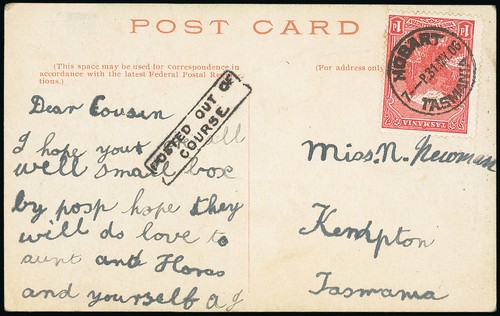 POST CARD
(This space may be used for correspondence in
accordance with the latest Federal Postal Regula-
tions.)
(For address only
1d 1d
TASMANIA
HOBART
TASMANIA
POSTED OUT OF
COURSE
Dear Cousin
I hope your all
well small box
by posp hope they
will do love to
aunt and Horas
and yourself A J
Miss. N. Newman
Kempton
Tasmania